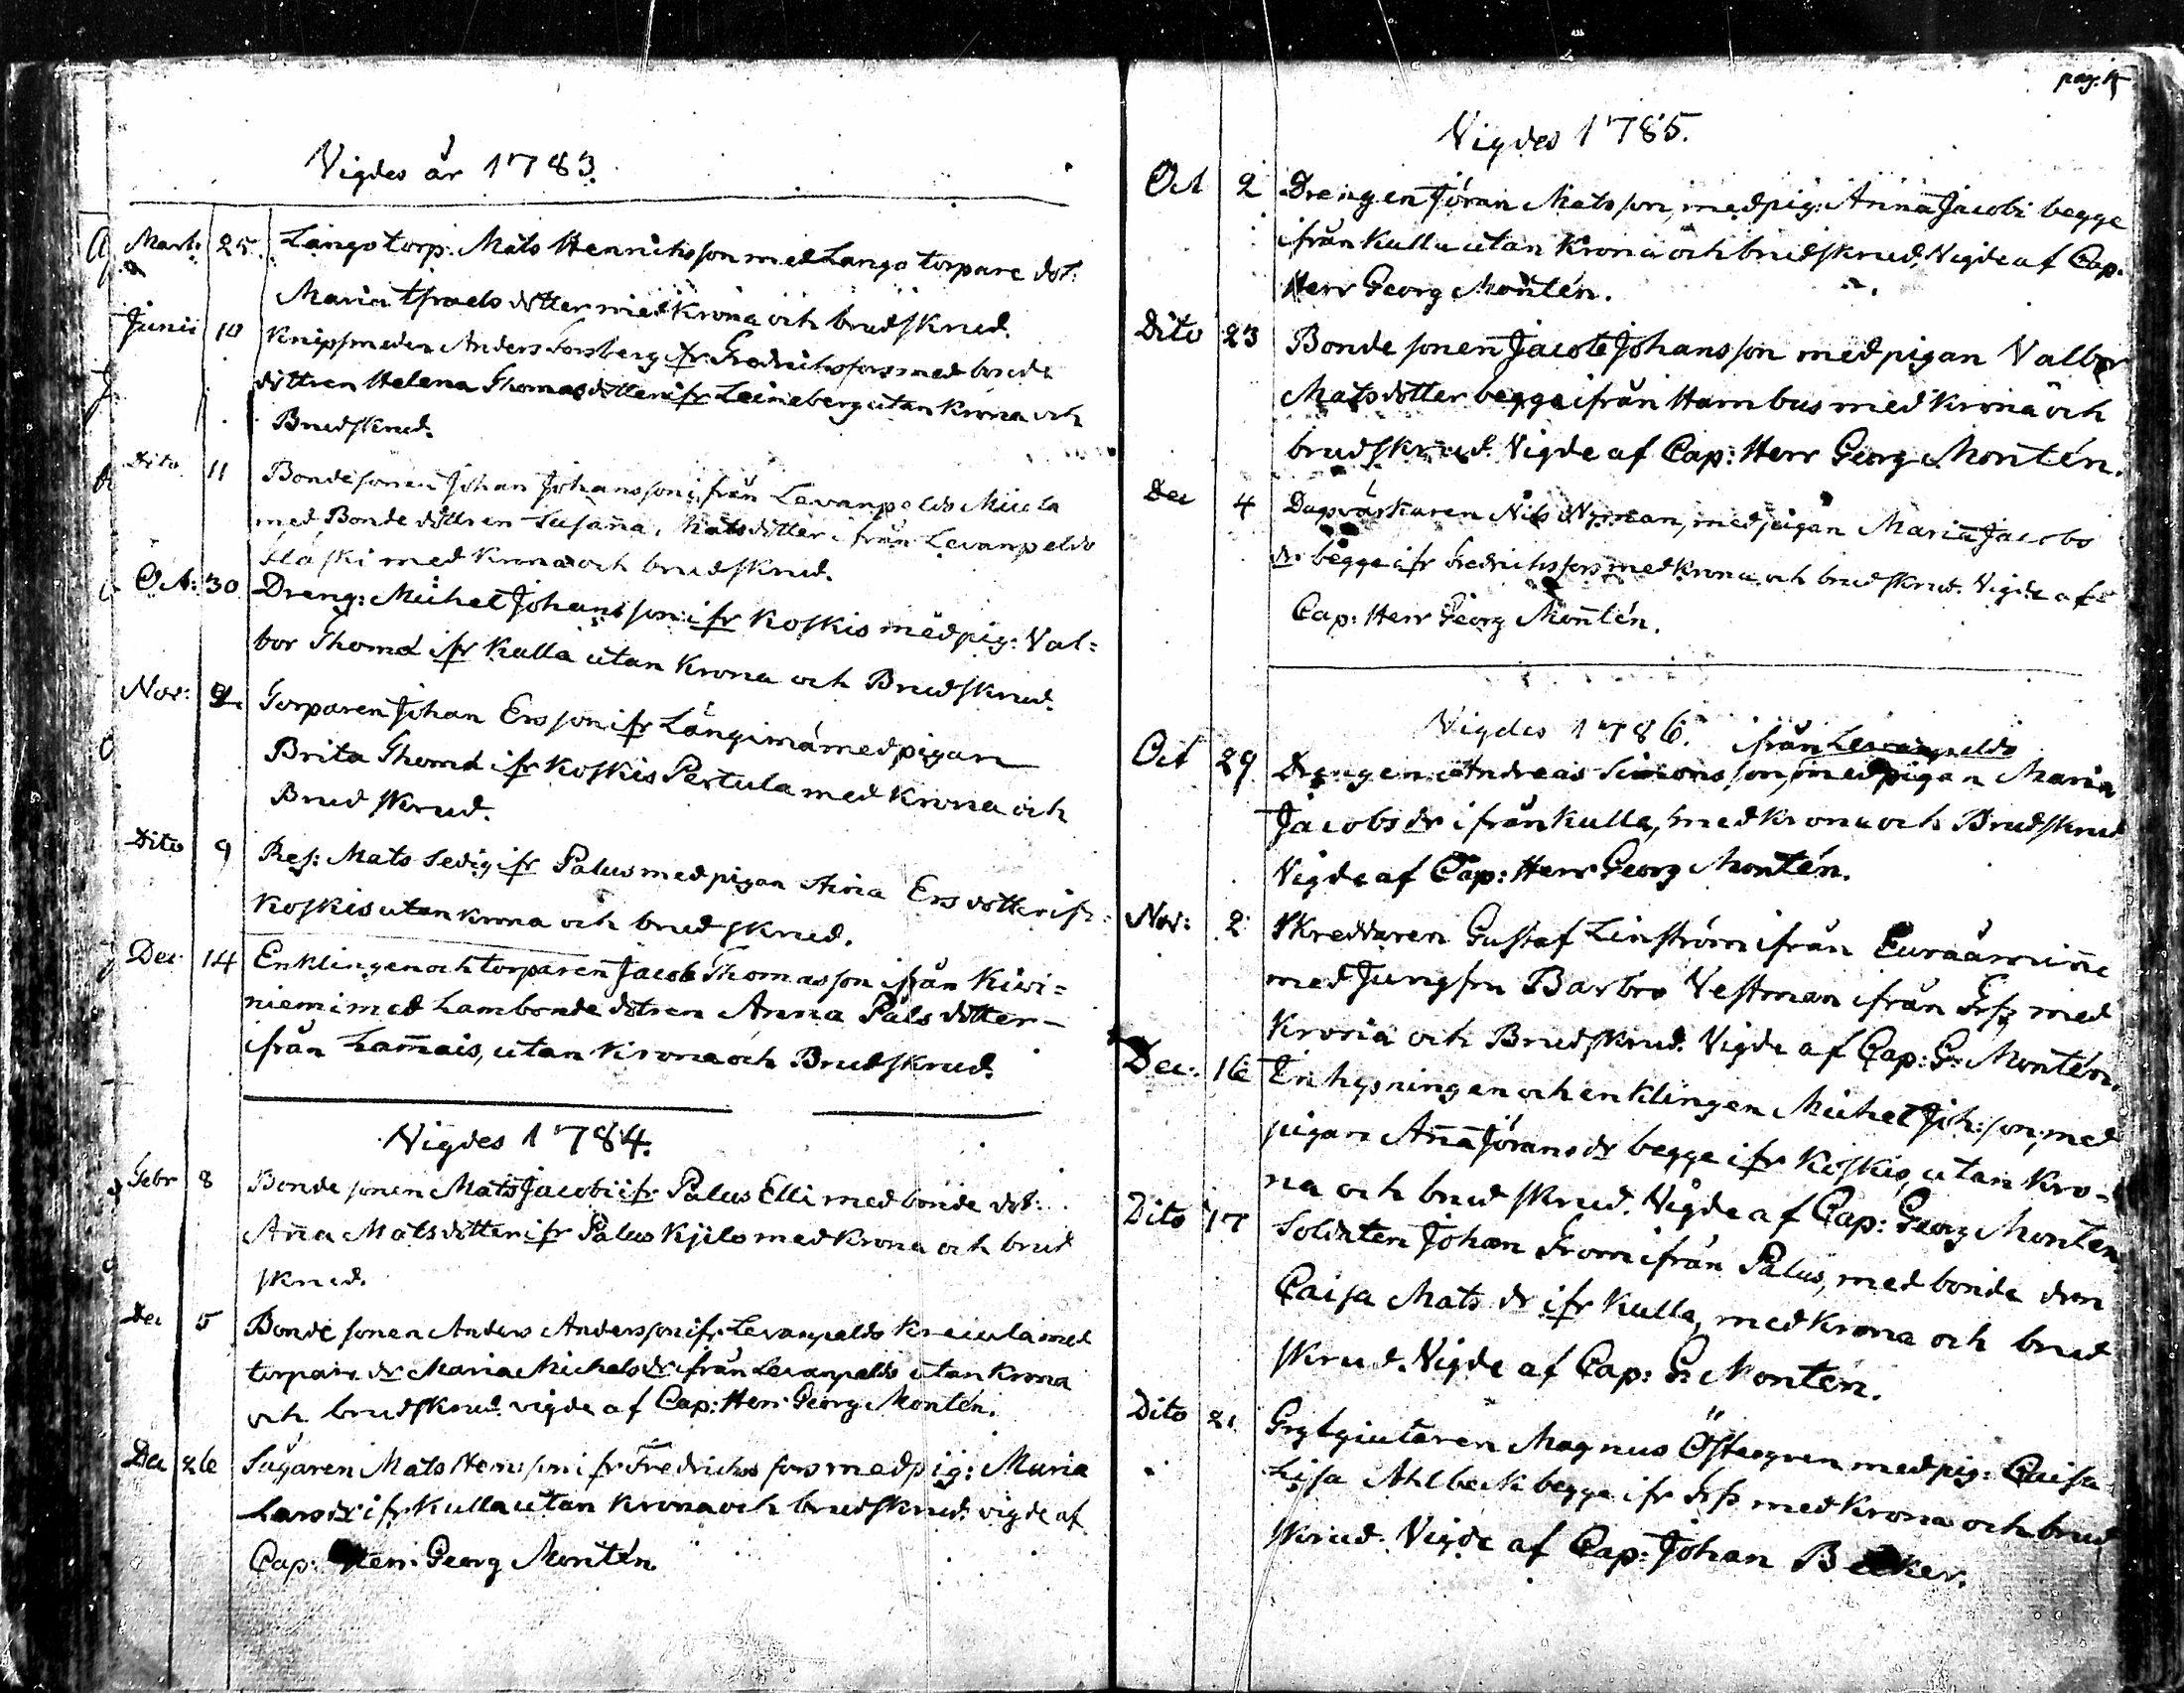 Vigdes år 1783.
Mart. 25. Långs torp: Mats Henrichsson med Långs torpare dot:
Maria Israels dotter med Krona och brudskrud.
Junii 10 Knipsmeden Anders Forsberg ifr Fredrichsfors med bonde
dottren Helena Thomasdotter ifr Leineberg utan Krona och
Brudskrud.
Dito 11 Bondesonen Johan Johansson ifrån Levanpeldo
med Bonde dottren Susanna Matsdotter ifrån Levanpeldo
med Krona och brudskrud.
Oct: 30. Dreng: Michel Johansson ifr Koskis med pig: Val=
bor Thomd ifr Kulla utan Krona och Brudskrud.
Nov: Torparen Johan Ersson ifr Långimä med pigan
Brita Thomd ifr Koskis Pertula med Krona och
Brudskrud.
Dito 9 Res: Mats Sedig ifr Palus med pigan Ana Ersdotter ifr
Koskis utan krona och brudskrud.
Dec 14 Enklingen och torparen Jacob Thomasson ifrån Kiwi=
niemi med Lambonde dotren Anna Påls dotter
ifrån Lam̄ais, utan Krona och Brudskrud.
Vigdes 1784.
Febr 8 Bonde sonen Mats Jacobi ifr Palus Elli med bonde dot:
An̄a Matsdotter ifr Palus Kjils med Krona och brud
skrud.
Dec 5 Bonde sonen Anders Andersson ifr Levanpeldo med
torpare dr Maria Michelsdr ifrån Levanpeldo utan Krona
och brudskrud. vigde af Cap: Herr Georg Montén.
Dec 26 Sågaren Mats Hensson ifr Fredrichsfors med pig: Maria
Larsdr ifr Kulla utan Krona och brudskrud. vigde af
Cap: Herr Georg Montén.
pag. 4
Vigdes 1785.
Oct 2 Drengen Jöran Matsson, med pig: Anna Jacobi begge
ifrån Kulla utan Krona och brudskrud, Vigde af Cap.
Herr Georg Montén.
Dito 23 Bonde sonen Jacob Johansson med pigan Valbor
Matsdotter begge ifrån Hambus med Krona och
brudskrud. Vigde af Cap: Herr Georg Montén.
Dec 4 Dagsvärkaren Nils Nyman, med pigan Maria Jacobs
dr begge ifr Fredrichsfors med Krona och brudskrud. Vigde af
Cap: Herr Georg Montén.
Vigdes 1786.
ifrån Levanpeldo
Oct 29. Drengen Andreas Simonsson, med pigan Maria
Jacobsdr ifrån Kulla, med Krona och Brudskrud
Vigde af Cap: Herr Georg Montén.
Nov: 2 Skreddaren Gustaf Linström ifrån Euraåmin̄e
med Jungfru Barbro Vestman ifrån med
Krona och Brudskrud. Vigde af Cap: G: Montén.
Dec. 16 Inhysningen och enklingen Michel Joh:son, med
pigan An̄a Jöransdr begge ifr Koskis, utan Kro-
na och brudskrud. Vigde af Cap: Georg Montén
Dito 17 Soldaten Johan From ifrån Palus, med bonde dren
Caisa Mats dr ifr Kulla, med Krona och brud
skrud. Vigde af Cap: G: Montén.
Dito 21. Grytgiutaren Magnus Östergren med pig: Caisa
Lisa Ahlbeck begge ifr med Krona och brud
skrud. Vigde af Cap: Johan Becker.